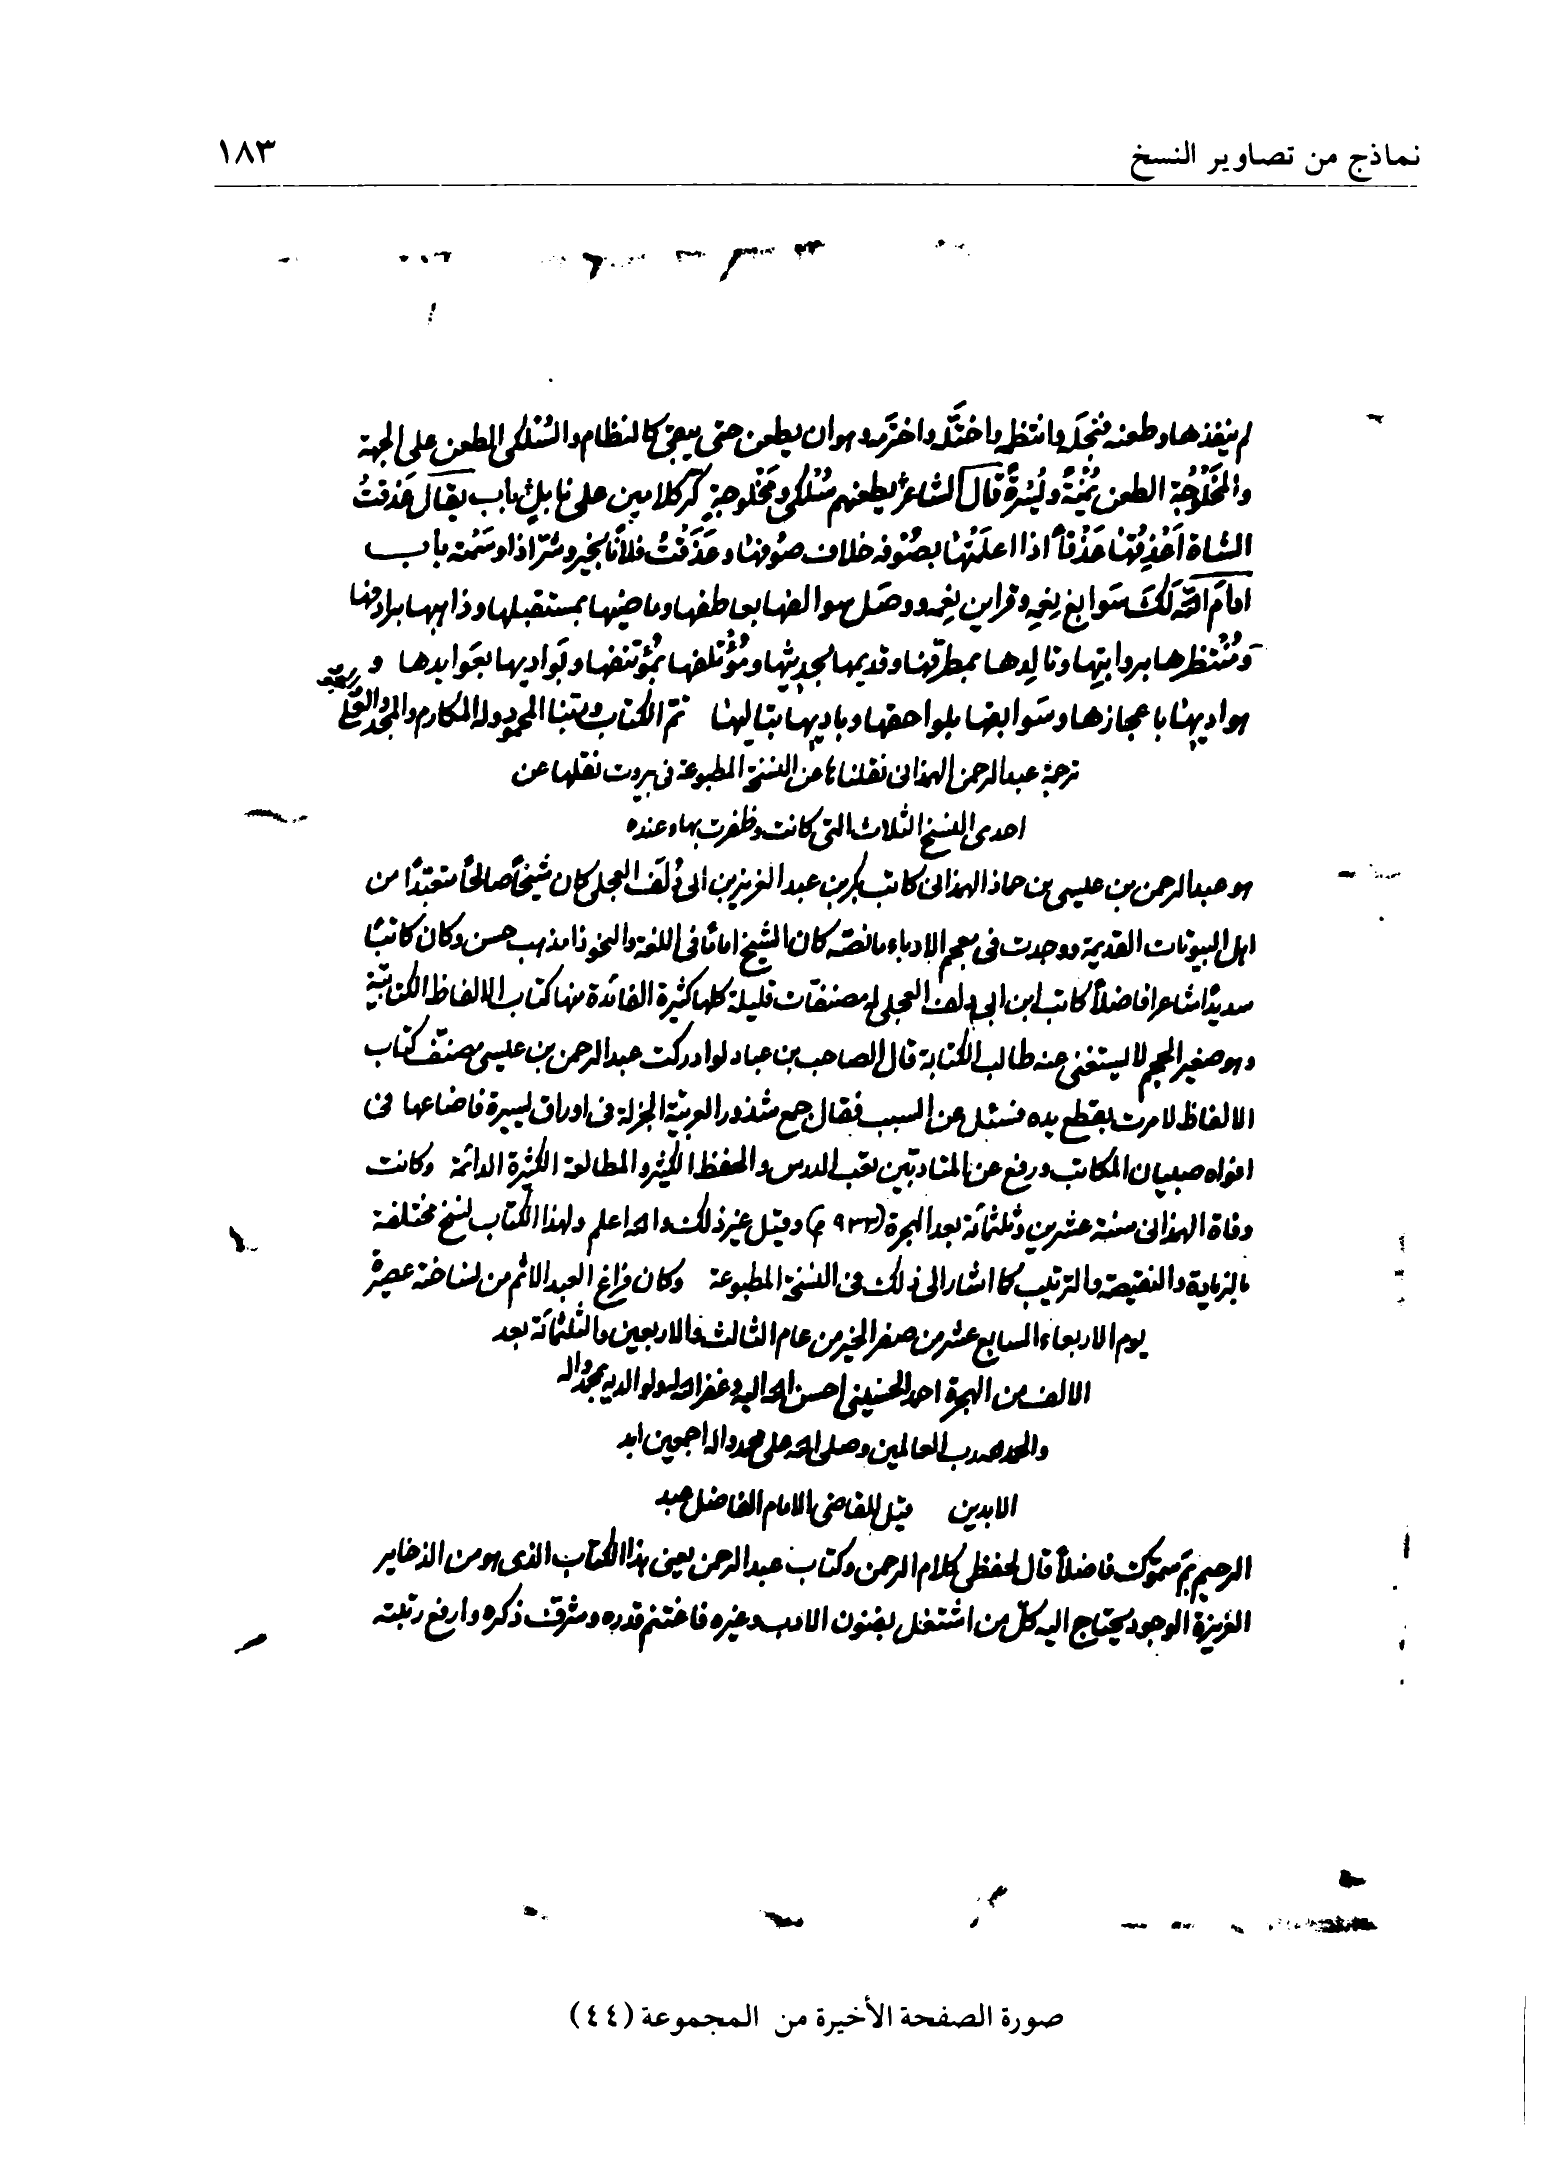 نماذج من تصاوير النسخ
١٨٣
لم ينفذها وطعنه فنجله وانتظمه واختلّه واختزّه وهو ان يطعن حتى يبقى كالنظام والسُلكى الطعن على الجهة
والمَخلُوجَة الطعن يُمْنَةً ويُسْرَةً قال الشاعر يطعنهم سُلكى ومَخْلُوجةٍ كرّ كلامين على نابلٍ باب يقال عَذَقتُ
الشاة اَعْذِقُها عَذْقاً اذا اعلَمْتَها بصُوفه خلاف صوفها وعَذَقْتُ فلاناً بخير وشرّ اذا وسَمْته باب
ادامَ الله لك سَوابغ نِعَمِه وقراين نِعَمه ووصَل سوالفها بعواطفها وماضيها بمستقبلها وذاهبها برادفها
ومُنتظرها برواتبها وتالدها بمطرّفها وقديمها بحديثها ومُؤتلفها بمُؤتنفها وبَواديها بعَوايدها و
هواديها باعجازها وسَوابقها بلواحقها وباديها بتاليها تمّ الكتاب وربنا المحمود وله المكارم والمجد والعُلى
ترجمة عبدالرحمن الهمذانى نقلناها عن النسخة المطبوعة فى بيروت نقلها عن
احدى النسخ الثلاث التى كانت وظفرت بها وعنده
هو عبدالرحمن بن عيسى بن حماد الهمذانى كاتب بكر بن عبد العزيز بن ابى دُلَف العجلى كان شيخاً صالحاً متعبّدًا من
اهل البيوتات القديمة ووجدت فى معجم الادباء ما نصّه كان الشيخ اماماً فى اللغة والنحو ذا مذهب حسن وكان كاتباً
سديدًا شاعرا فاضلاً كاتب ابن ابى دلف العجلى له مصنفات قليلة كلها كثيرة الفائدة منها كتاب الالفاظ الكتابيّة
وهو صغير الحجم لا يستغنى عنه طالب الكتابة قال الصاحب بن عباد لو ادركت عبدالرحمن بن عيسى مصنّف كتاب
الالفاظ لامرت بقطع يده فسئل عن السبب فقال جمع شذور العربيّة الجزلة فى اوراق يسيرة فاضاعها فى
افواه صبيان المكاتب ورفع عن المتادبّين تعب الدرس والحفظ الكثير والمطالعة الكثيرة الدائمة وكانت
وفاة الهمذانى سنة عشرين وثلثمائة بعد الهجرة (٩٣٣ م) وقيل غير ذلك والله اعلم ولهذا الكتاب نسخ مختلفة
بالزيادة والنقيصة والترتيب كما اشار الى ذلك فى النسخة المطبوعة وكان فراغ العبد الاثم من نساخته عصيرة
يوم الاربعاء السابع عشر من صفر الخير من عام الثالث والاربعين والثلثمائة بعد
الالف من الهجرة احمد الحسينى احسن الله اليه وغفر الله له ولوالديه بمحمد واله
والحمد لله رب العالمين وصلى الله على محمد واله اجمعين ابد
الابدين قيل للقاضى الامام الفاضل عبد
الرحيم بم فاضلاً قال لحفظى كلام الرحمن وكتاب عبدالرحمن يعنى هذا الكتاب الذى هو من الذخاير
العزيزة الوجود يحتاج اليه كلّ من اشتغل بفنون الادب وغيره فاغتنم قدره وشرّف ذكره وارفع رتبته
صورة الصفحة الأخيرة من المجموعة (٤٤)